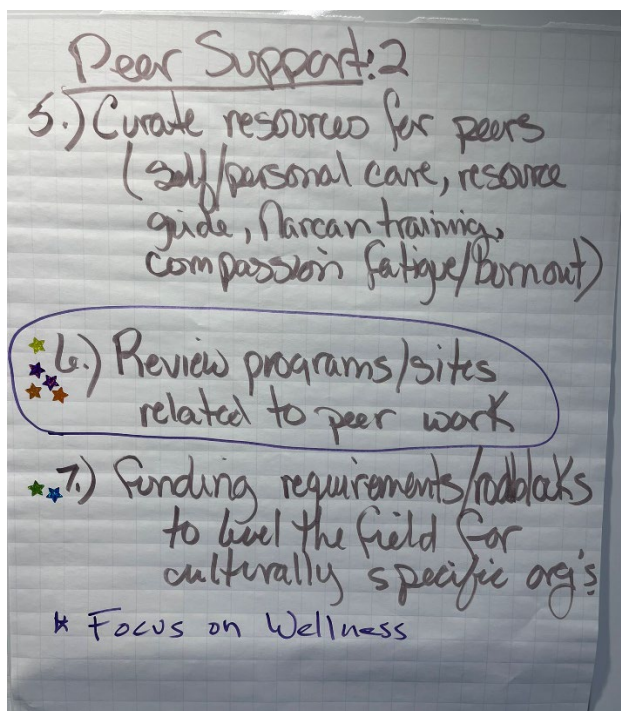 Peer Support: 2
5.) Curate resources for peers
(self/personal care, resource
guide, Narcan training,
compassion fatigue/burnout)
6.) Review programs/sites
related to peer work
7.) Funding requirements/rodblocks
to level the field for
culturally specific org's
* Focus on Wellness